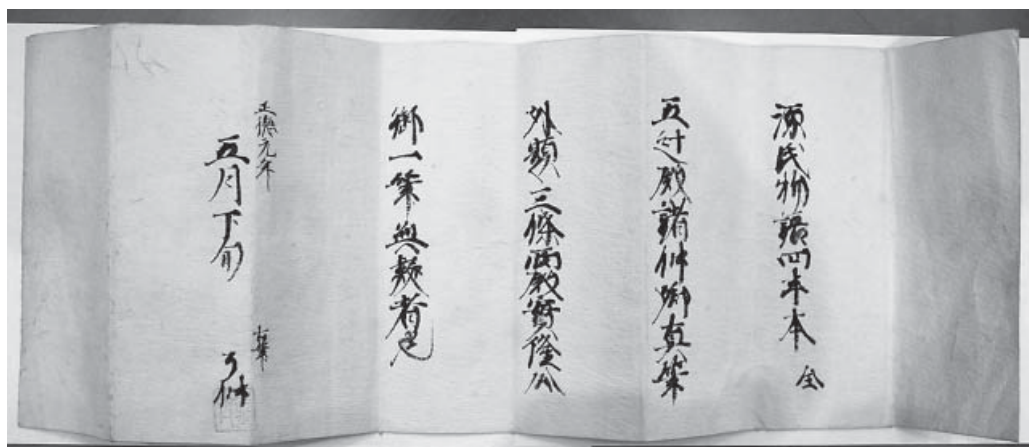 源氏物語四半本 全
五辻殿諸仲卿真筆
外題三條西殿實隆公
御一筆無疑者也
正徳元年
五月下旬
古筆
了仲